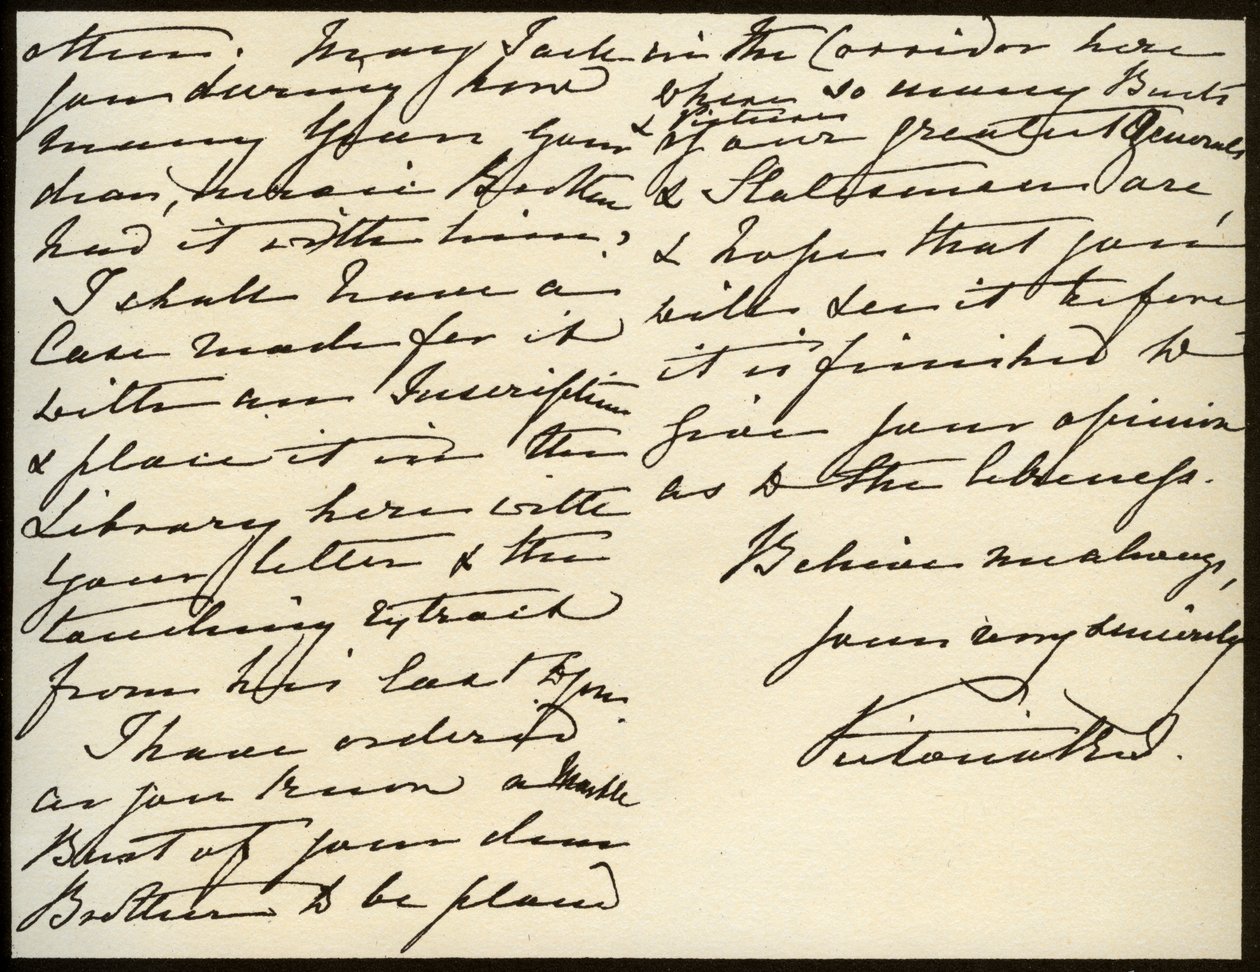 other. May I ask
you during how
many Years Your
dear, heroic Brother
had it with him?
I shall have a
Case made for it
with an Inscription
& place it in the
Library here with
your letter & the
touching Extract
from his last to you.
I have ordered
as you know a Marble
Bust of your dear
Brother to be placed
in the Corridor here
where so many Busts
& Pictures
of our greatest Generals
& Statesmen are,
& hope that you
will see it before
it is finished to
give your opinion
as to the likeness.
Believe me always,
yours very sincerely
Victoria R I.